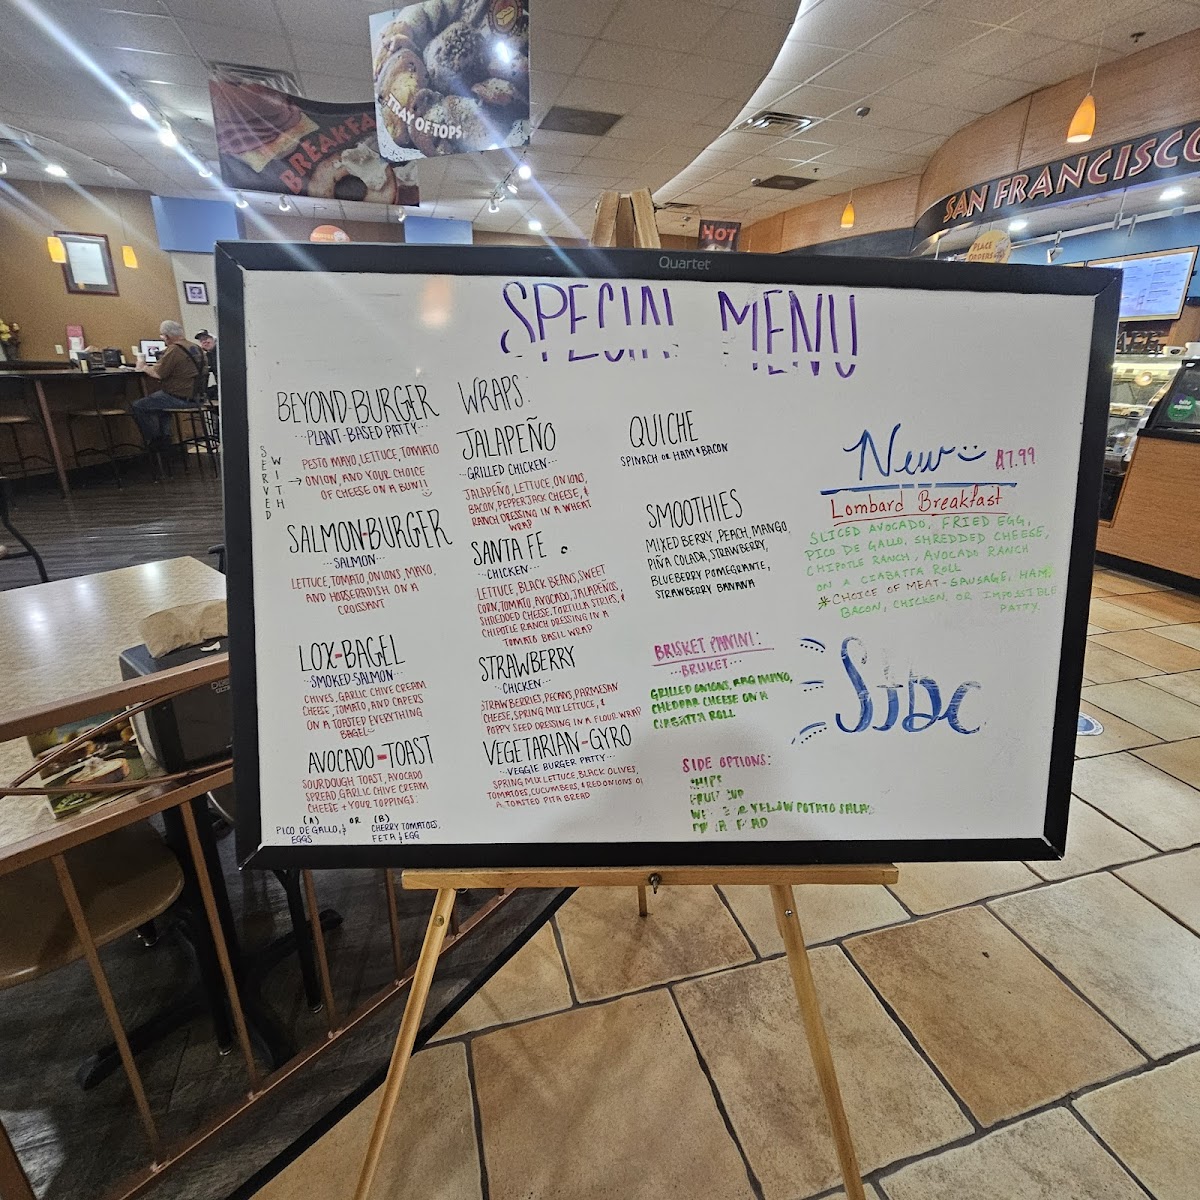 TRAY OF TOPS
BREAKFA
SAN FRANCISCO
HOT
PLACE
ORDERS
Quartet
SPECIAL MENU
BEYOND-BURGER
PLANT-BASED PATTY
SERVED
WITH
PESTO MAYO, LETTUCE, TOMATO
→ ONION, AND YOUR CHOICE
OF CHEESE ON A BUN!!
SALMON-BURGER
SALMON
LETTUCE, TOMATO, ONIONS, MAYO,
AND HORSERADISH ON A
CROISSANT
LOX-BAGEL
SMOKED-SALMON
CHIVES, GARLIC CHIVE CREAM
CHEESE, TOMATO, AND CAPERS
ON A TOASTED EVERYTHING
BAGEL
AVOCADO-TOAST
SOURDOUGH TOAST, AVOCADO
SPREAD, GARLIC CHIVE CREAM
CHEESE + YOUR TOPPINGS:
(A) OR (B)
PICO DE GALLO, &
EGGS
CHERRY TOMATOES,
FETA & EGG
WRAPS:
JALAPEÑO
GRILLED CHICKEN
JALAPEÑO, LETTUCE, ONIONS,
BACON, PEPPERJACK CHEESE, &
RANCH DRESSING IN A WHEAT
WRAP
SANTA FE
CHICKEN
LETTUCE, BLACK BEANS, SWEET
CORN, TOMATO, AVOCADO, JALAPEÑOS,
SHREDDED CHEESE, TORTILLA STRIPS, &
CHIPOTLE RANCH DRESSING IN A
TOMATO BASIL WRAP
STRAWBERRY
CHICKEN
STRAWBERRIES, PECANS, PARMESAN
CHEESE, SPRING MIX LETTUCE, &
POPPY SEED DRESSING IN A FLOUR WRAP
VEGETARIAN-GYRO
VEGGIE BURGER PATTY
SPRING MIX LETTUCE, BLACK OLIVES,
TOMATOES, CUCUMBERS, & RED ONIONS ON
A TOASTED PITA BREAD
QUICHE
SPINACH OR HAM & BACON
SMOOTHIES
MIXED BERRY, PEACH, MANGO,
PINA COLADA, STRAWBERRY,
BLUEBERRY POMEGRANTE,
STRAWBERRY BANANA
BRISKET PANINI:
BRISKET
GRILLED ONIONS, BBQ MAYO,
CHEDDAR CHEESE ON A
CIABATTA ROLL
SIDE OPTIONS:
CHIPS
FRUIT CUP
YELLOW POTATO SALAD
New $7.99
Lombard Breakfast
SLICED AVOCADO, FRIED EGG,
PICO DE GALLO, SHREDDED CHEESE,
CHIPOTLE RANCH, AVOCADO RANCH
ON A CIABATTA ROLL
*CHOICE OF MEAT- SAUSAGE, HAM,
BACON, CHICKEN, OR IMPOSSIBLE
PATTY.
SFDC